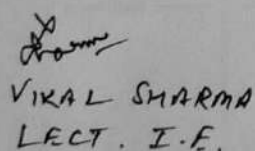 VIKAL SHARMA
LECT. I.F.